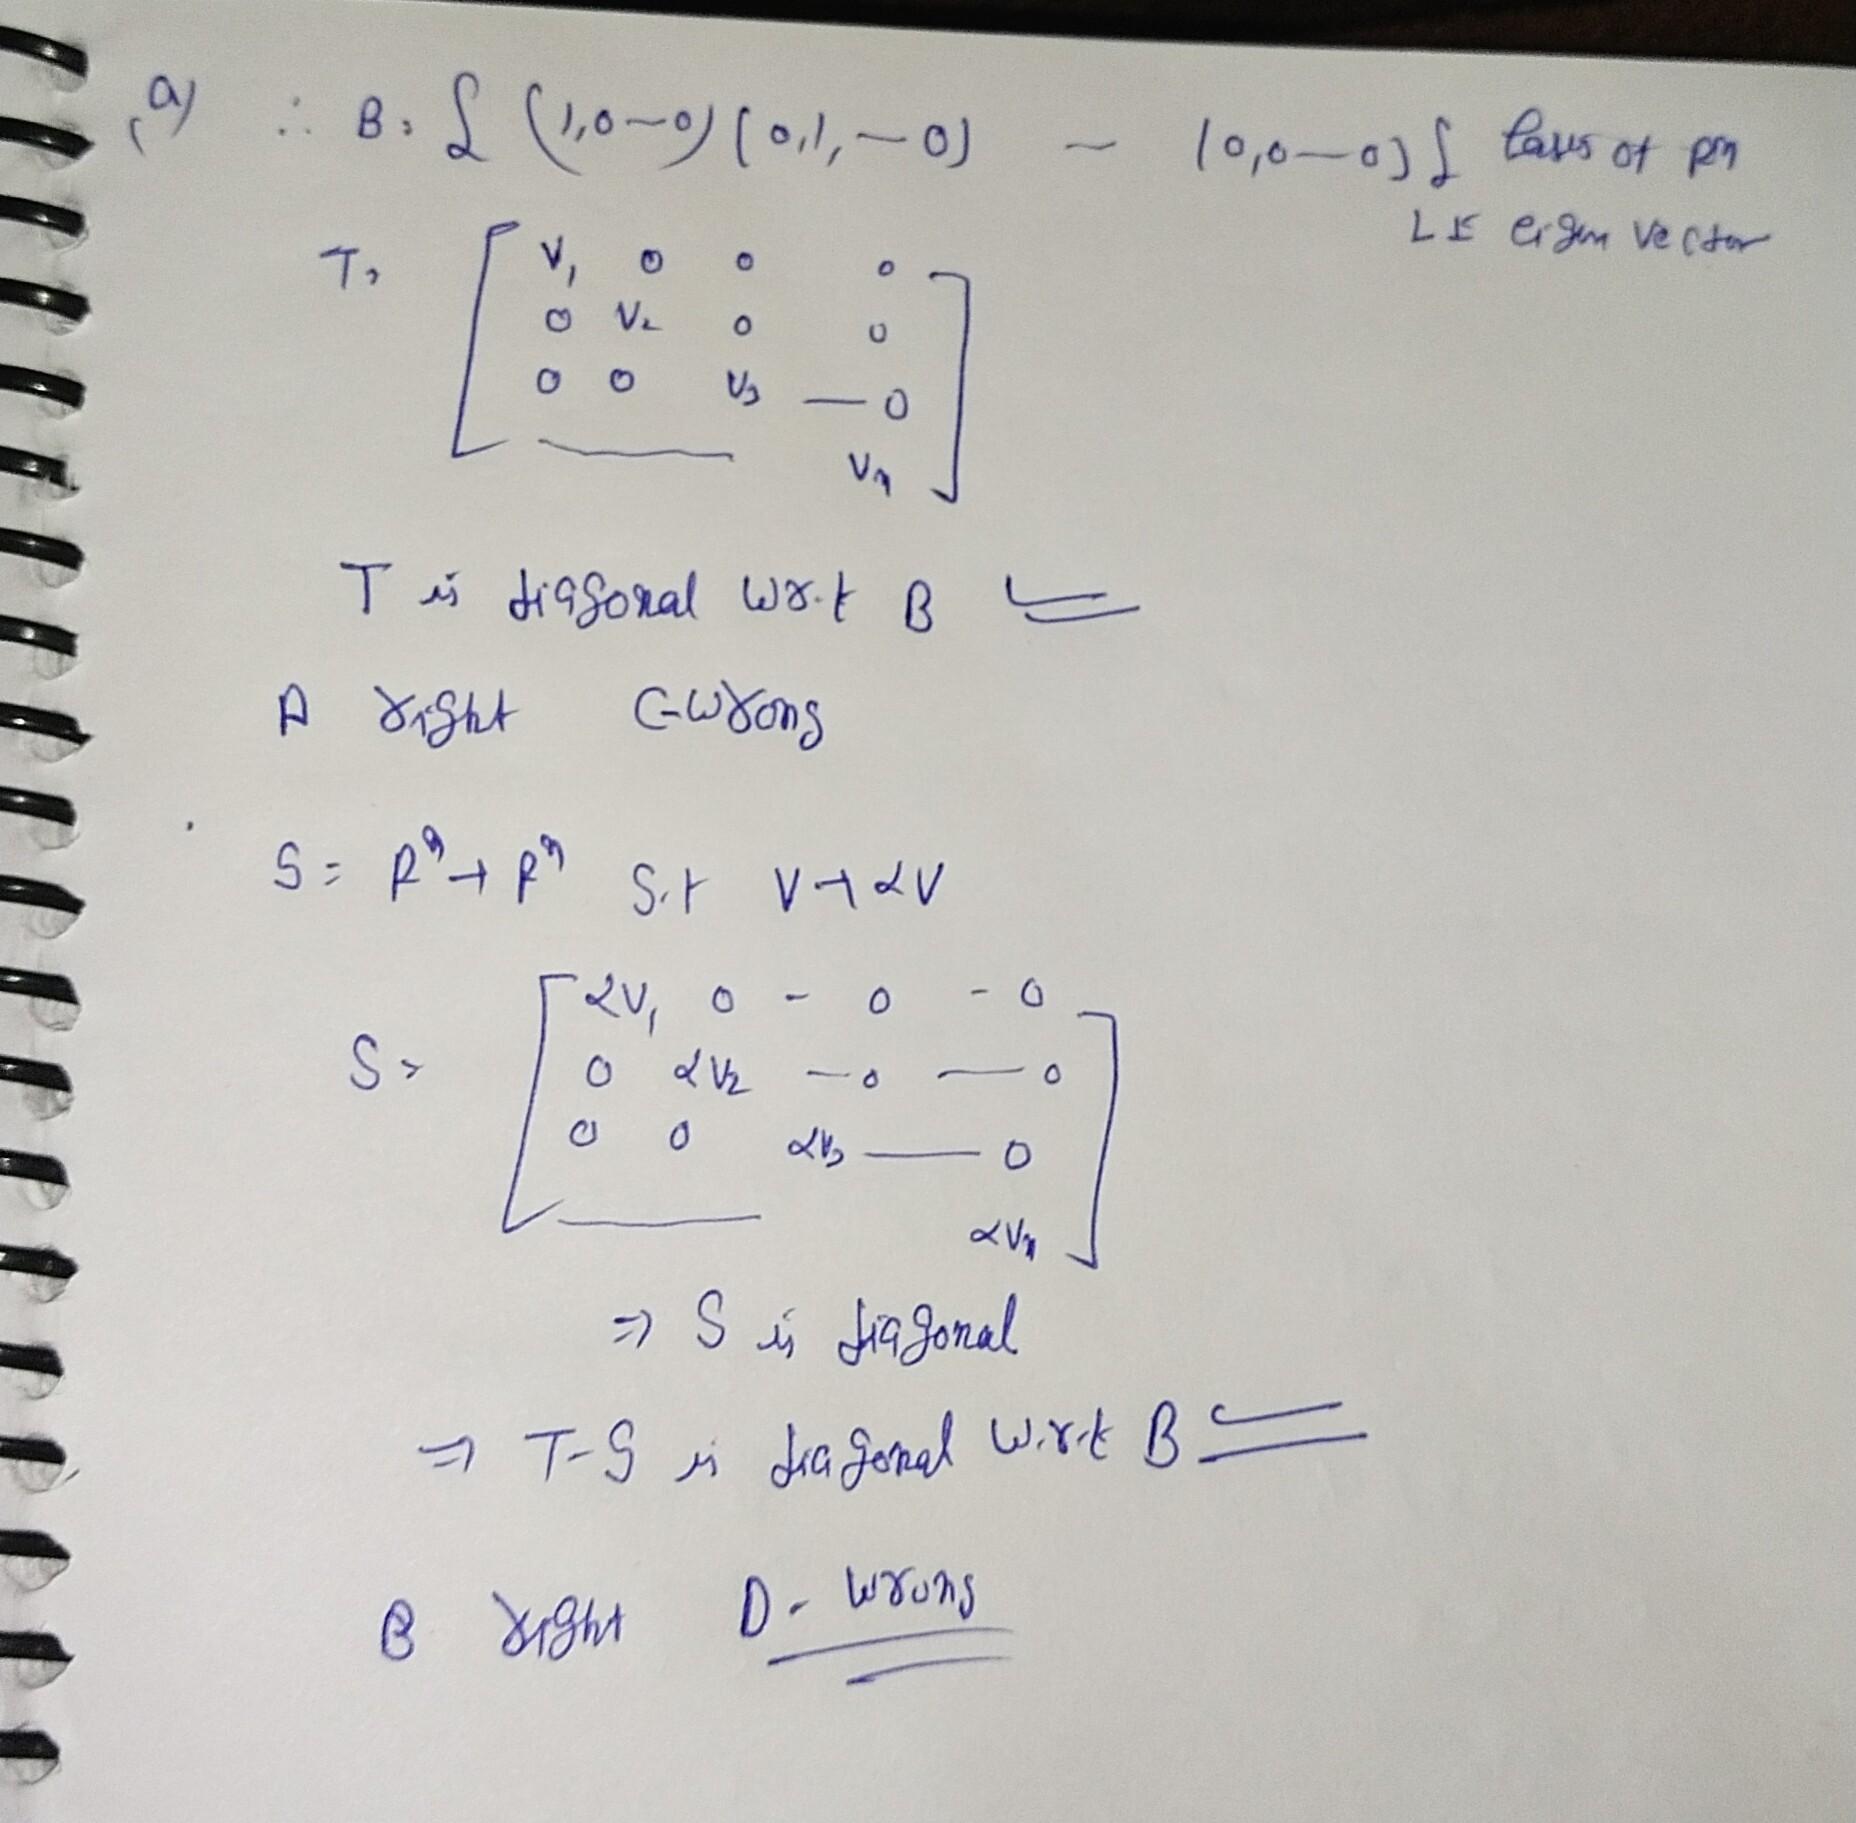 a) ∴ B = { (1,0—0) (0,1,—0) — (0,0—0) } basis of Rn
LI eigen vector
T = [ V1 0 0 0
0 V2 0 0
0 0 V3 — 0
— Vn ]
T is diagonal w.r.t B
A right C-wrong
S = Rn → Rn S.t V → αV
S = [ αV1 0 - 0 - 0
0 αV2 — 0 — 0
0 0 αV3 — 0
— αVn ]
=> S is diagonal
=> T-S is diagonal w.r.t B
B right D- wrong